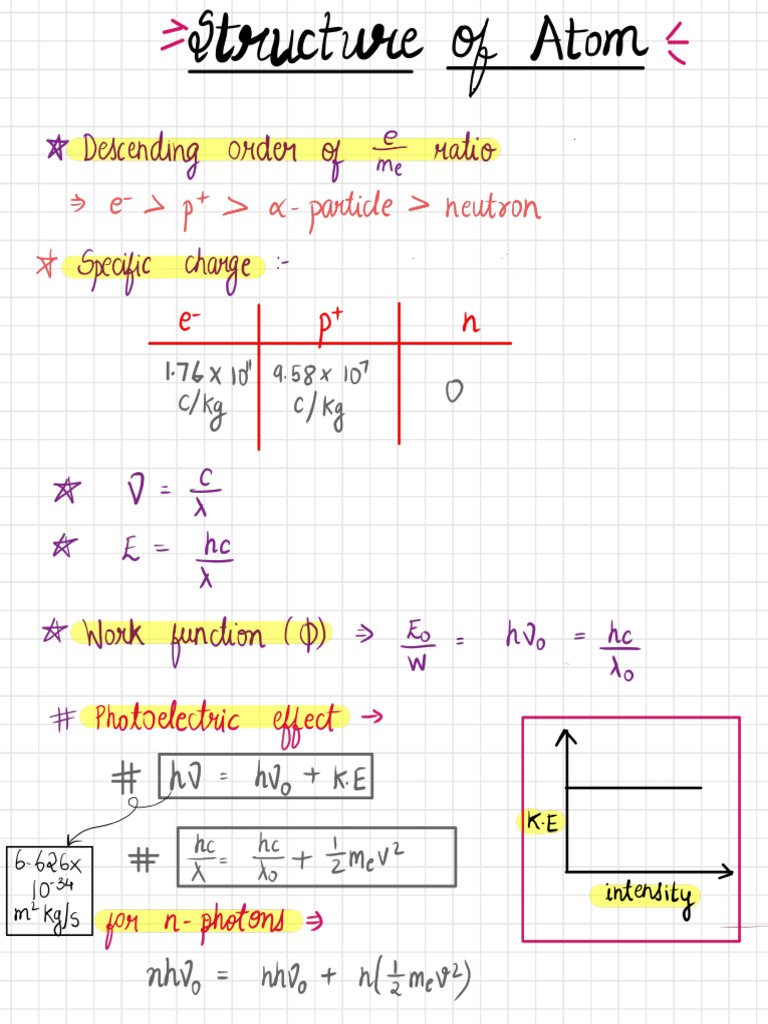 Structure of Atom
☆ Descending order of e/me ratio
⇒ e⁻ > p⁺ > α-particle > neutron
☆ Specific charge :-
e⁻ p⁺ n
1.76 × 10¹¹ C/kg 9.58 × 10⁷ C/kg 0
☆ ν = c/λ
☆ E = hc/λ
☆ Work function (ϕ) ⇒ E₀/W = hν₀ = hc/λ₀
# Photoelectric effect →
# hν = hν₀ + K.E
6.626×
10⁻³⁴
m² kg/s
# hc/λ = hc/λ₀ + 1/2 mₑv²
K.E
intensity
for n-photons ⇒
nhν₀ = nhν₀ + n(1/2 mₑv²)